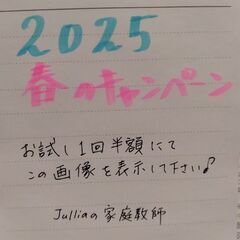 2025
春のキャンペーン
お試し1回半額にて
この画像を表示して下さい♪
Julliaの家庭教師